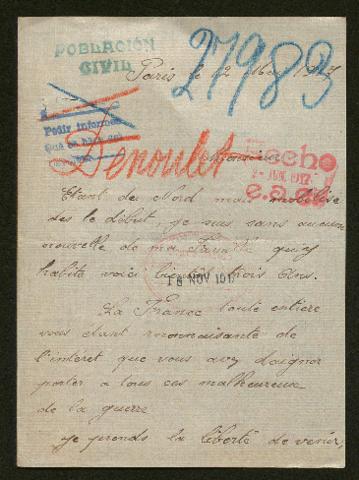 POBLACIÓN
CIVIL
27983
Paris le 12 Mai 1917
Pedir informes
Denoulet
Monsieur
Hecho
2 - JUN. 1917
Etant du Nord mais mobilisé
des le début, je suis sans aucune
nouvelle de ma Famille qui y
habite voici bientot trois Ans.
18 NOV 1917
La France toute entiere
vous etant reconnaisante de
l'interet que vous avez daigner
porter a tous ces malheureux
de la guerre
je prends la liberté de venir,